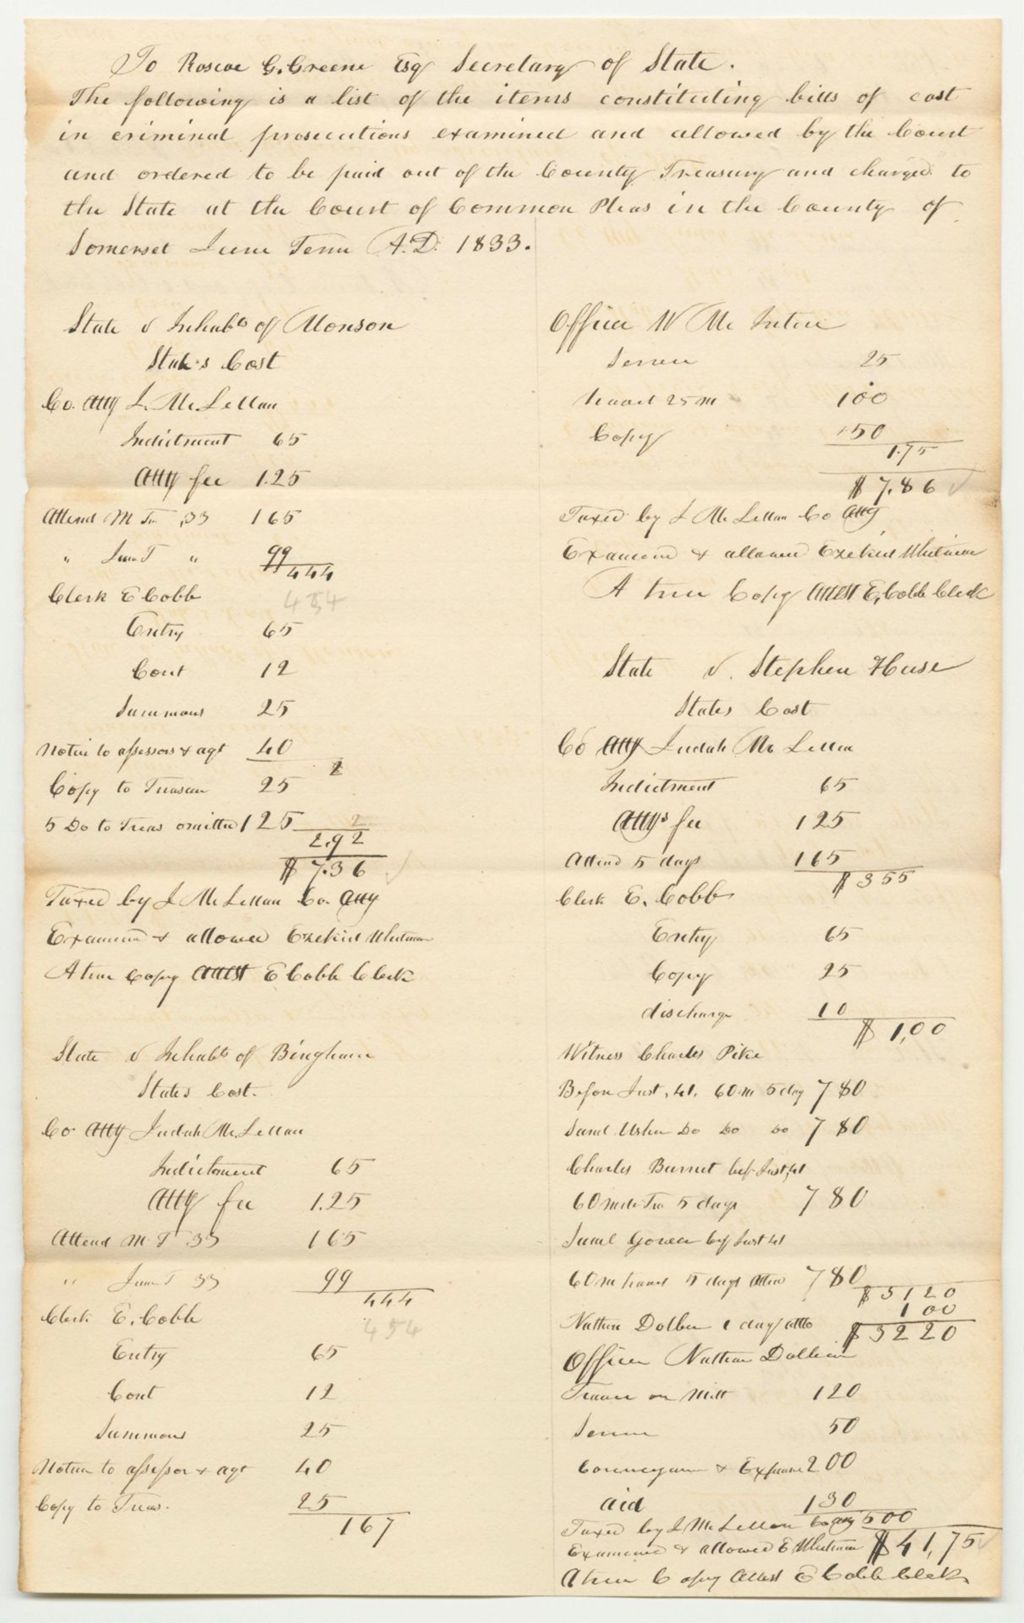 To Roscoe G. Greene Esq Secretary of State.
The following is a list of the items constituting bills of cost
in criminal prosecutions examined and allowed by the Court
and ordered to be paid out of the County Treasury and charged to
the State at the Court of Common Pleas in the County of
Somerset June Term A.D. 1833.
State v Inhabts of Monson
State's Cost
Co. Atty J. McLellan
Indictment 65
Atty fee 1.25
Attend M Tm ,33 165
" June T " 99
444
Clerk E Cobb 454
Entry 65
Cont 12
Summons 25
Notice to assessors & agt 40
Copy to Treasurer 25
5 Do to Treas omitted 125
2.92
$ 7.36
Taxed by J McLellan Co. Atty
Examined & allowed Ezekiel Whitman
A true Copy Attest E Cobb Clerk
State v Inhabts of Bingham
States Cost.
Co Atty Judah McLellan
Indictment 65
Atty fee 1.25
Attend M T 33 165
" June T 33 99
444
Clerk E. Cobb 454
Entry 65
Cont 12
Summons 25
Notice to assessor & agt 40
Copy to Treas. 25
167
Officer W McIntire
Service 25
travel 25 m 100
Copy 50
1.75
$ 7.86
Taxed by J McLellan Co Atty
Examined & allowed Ezekiel Whitman
A true Copy Attest E. Cobb Clerk
State v. Stephen Huse
States Cost
Co Atty Judah McLellan
Indictment 65
Attys fee 125
Attend 5 days 165
$ 355
Clerk E. Cobb
Entry 65
Copy 25
discharge 10
$ 1,00
Witness Charles Pike
Before Just, 60 m 5 day 780
Saml Usher Do Do Do 780
Charles Burnet bef. Just,
60 mile Tra 5 days 780
Saml Gower bef Just
60 m travel 5 days Atten 780
$ 3120
100
Nathan Dolben 1 day atte $ 3220
Officer Nathan Dolben
Travel on Mitt 120
Service 50
Conveyance & Expense 200
aid 130
500
Taxed by J McLellan Co Atty
Examined & allowed E Whitman $ 41,75
A true Copy Attest E Cobb Clerk